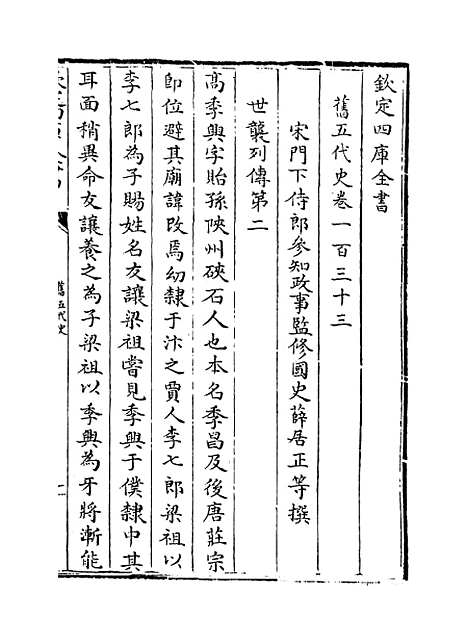 欽定四庫全書
舊五代史卷一百三十三
宋門下侍郎參知政事監修國史薛居正等撰
世襲列傳第二
高季興字貽孫陜州硤石人也本名季昌及後唐莊宗
即位避其廟諱改焉幼隸于汴之賈人李七郎梁祖以
李七郎為子賜姓名友讓梁祖嘗見季興于僕隸中其
耳面稍異命友讓養之為子梁祖以季興為牙將漸能
舊五代史